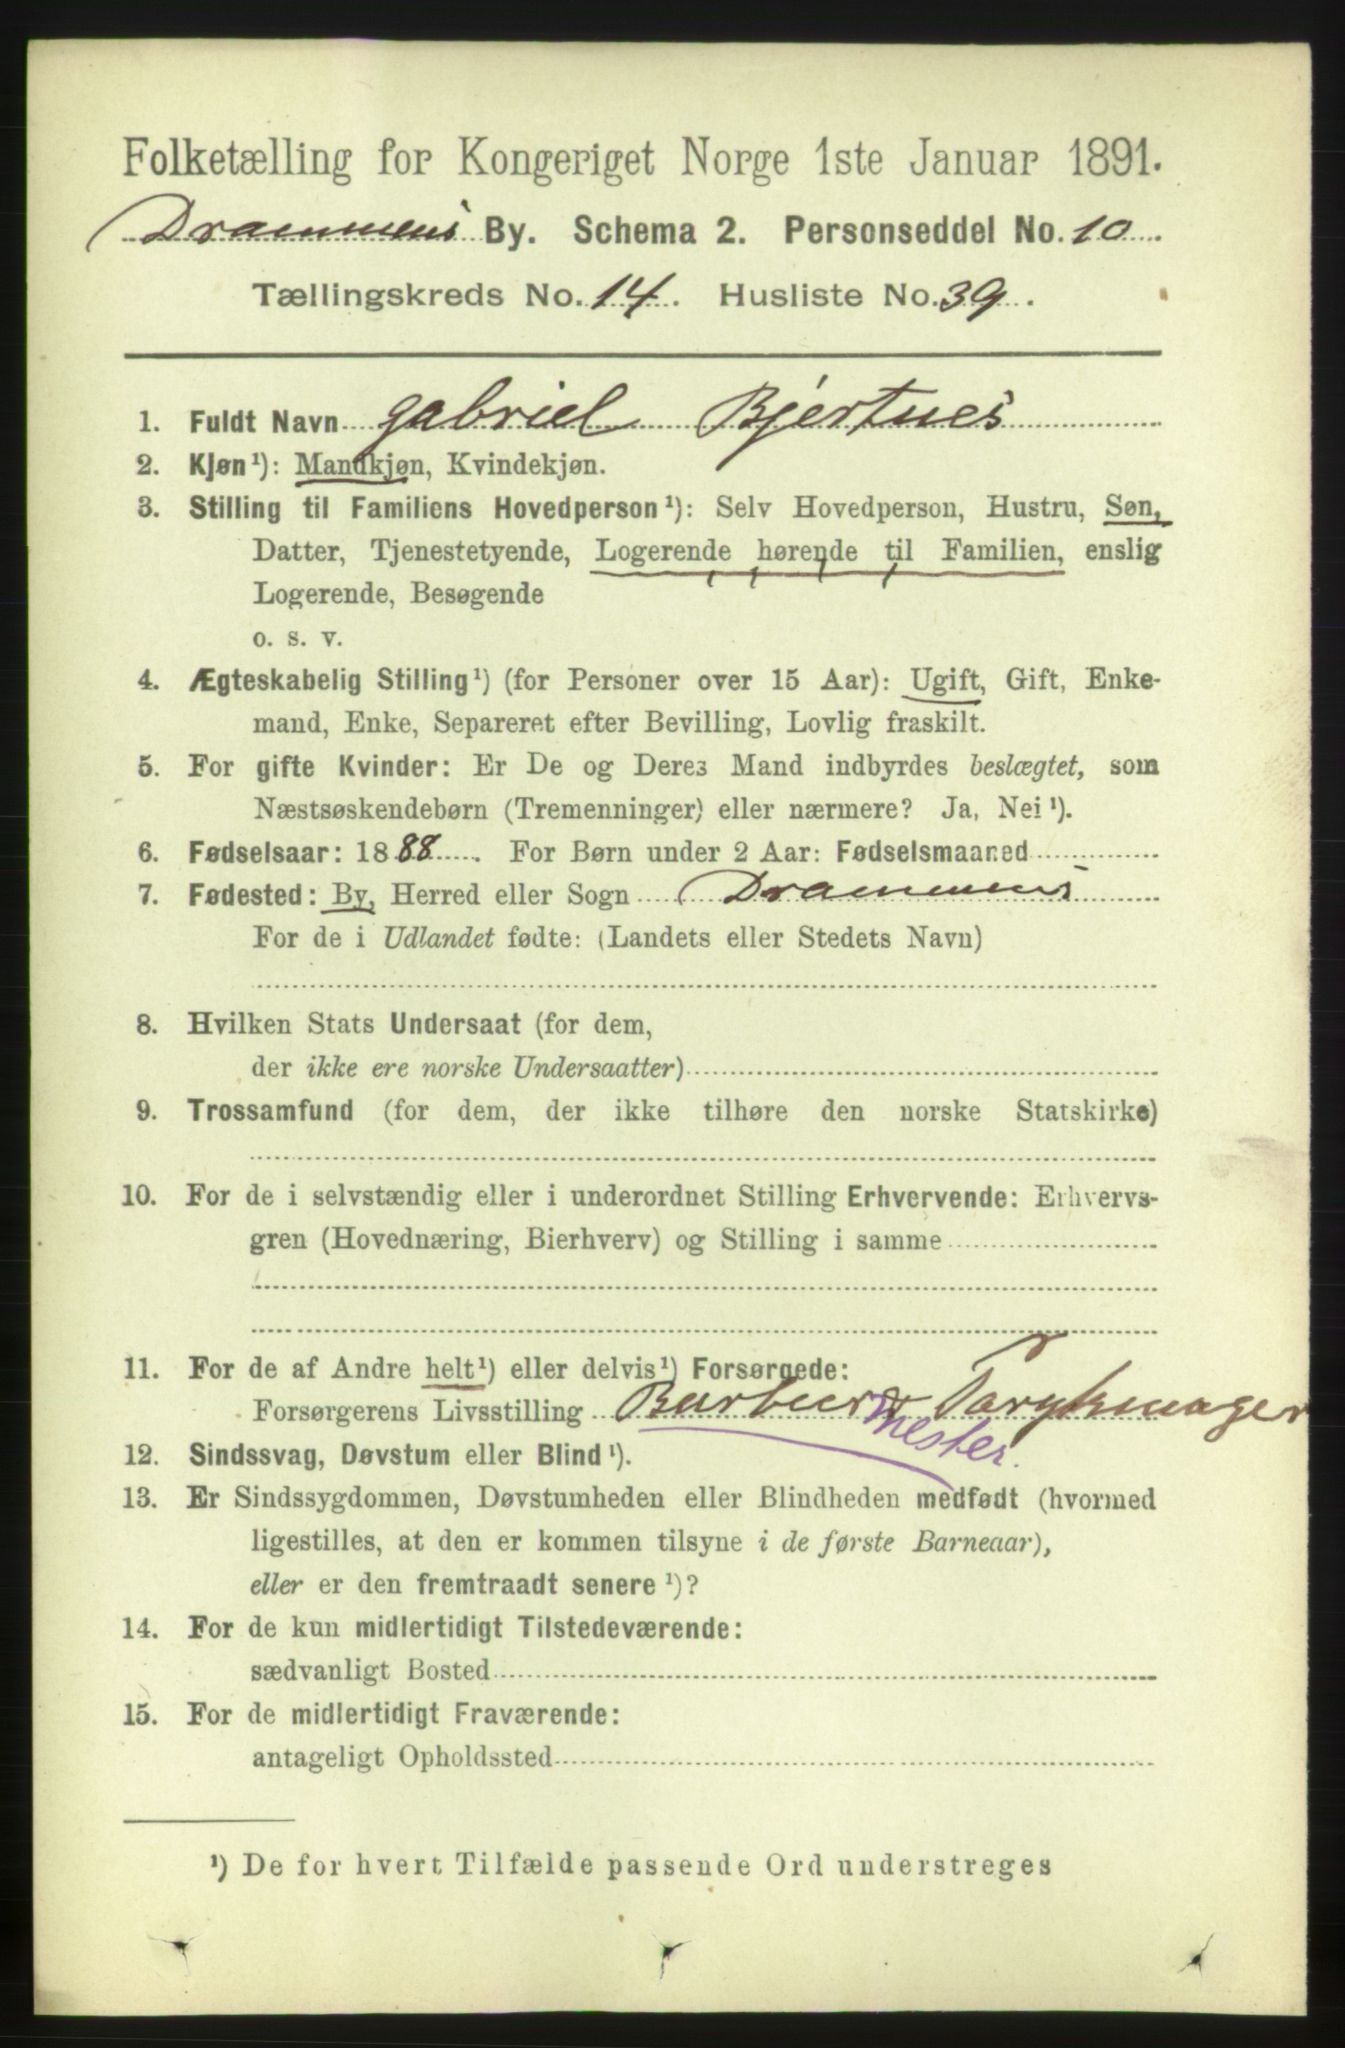 Folketælling for Kongeriget Norge 1ste Januar 1891.
Drammens By. Schema 2. Personseddel No. 10
Tællingskreds No. 14. Husliste No. 39.
1. Fuldt Navn Gabriel Bjertnes
2. Kjøn ¹): Mandkjøn, Kvindekjøn.
3. Stilling til Familiens Hovedperson ¹): Selv Hovedperson, Hustru, Søn,
Datter, Tjenestetyende, Logerende hørende til Familien, enslig
Logerende, Besøgende
o. s. v.
4. Ægteskabelig Stilling ¹) (for Personer over 15 Aar): Ugift, Gift, Enke-
mand, Enke, Separeret efter Bevilling, Lovlig fraskilt.
5. For gifte Kvinder: Er De og Deres Mand indbyrdes beslægtet, som
Næstsøskendebørn (Tremenninger) eller nærmere? Ja, Nei ¹).
6. Fødselsaar: 1888. For Børn under 2 Aar: Fødselsmaaned
7. Fødested: By, Herred eller Sogn Drammens
For de i Udlandet fødte: (Landets eller Stedets Navn)
8. Hvilken Stats Undersaat (for dem,
der ikke ere norske Undersaatter)
9. Trossamfund (for dem, der ikke tilhøre den norske Statskirke)
10. For de i selvstændig eller i underordnet Stilling Erhvervende: Erhvervs-
gren (Hovednæring, Bierhverv) og Stilling i samme
11. For de af Andre helt ¹) eller delvis ¹) Forsørgede:
Forsørgerens Livsstilling Barbeer & Parykmager
mester.
12. Sindssvag, Døvstum eller Blind ¹).
13. Er Sindssygdommen, Døvstumheden eller Blindheden medfødt (hvormed
ligestilles, at den er kommen tilsyne i de første Barneaar),
eller er den fremtraadt senere ¹)?
14. For de kun midlertidigt Tilstedeværende:
sædvanligt Bosted
15. For de midlertidigt Fraværende:
antageligt Opholdssted
¹) De for hvert Tilfælde passende Ord understreges